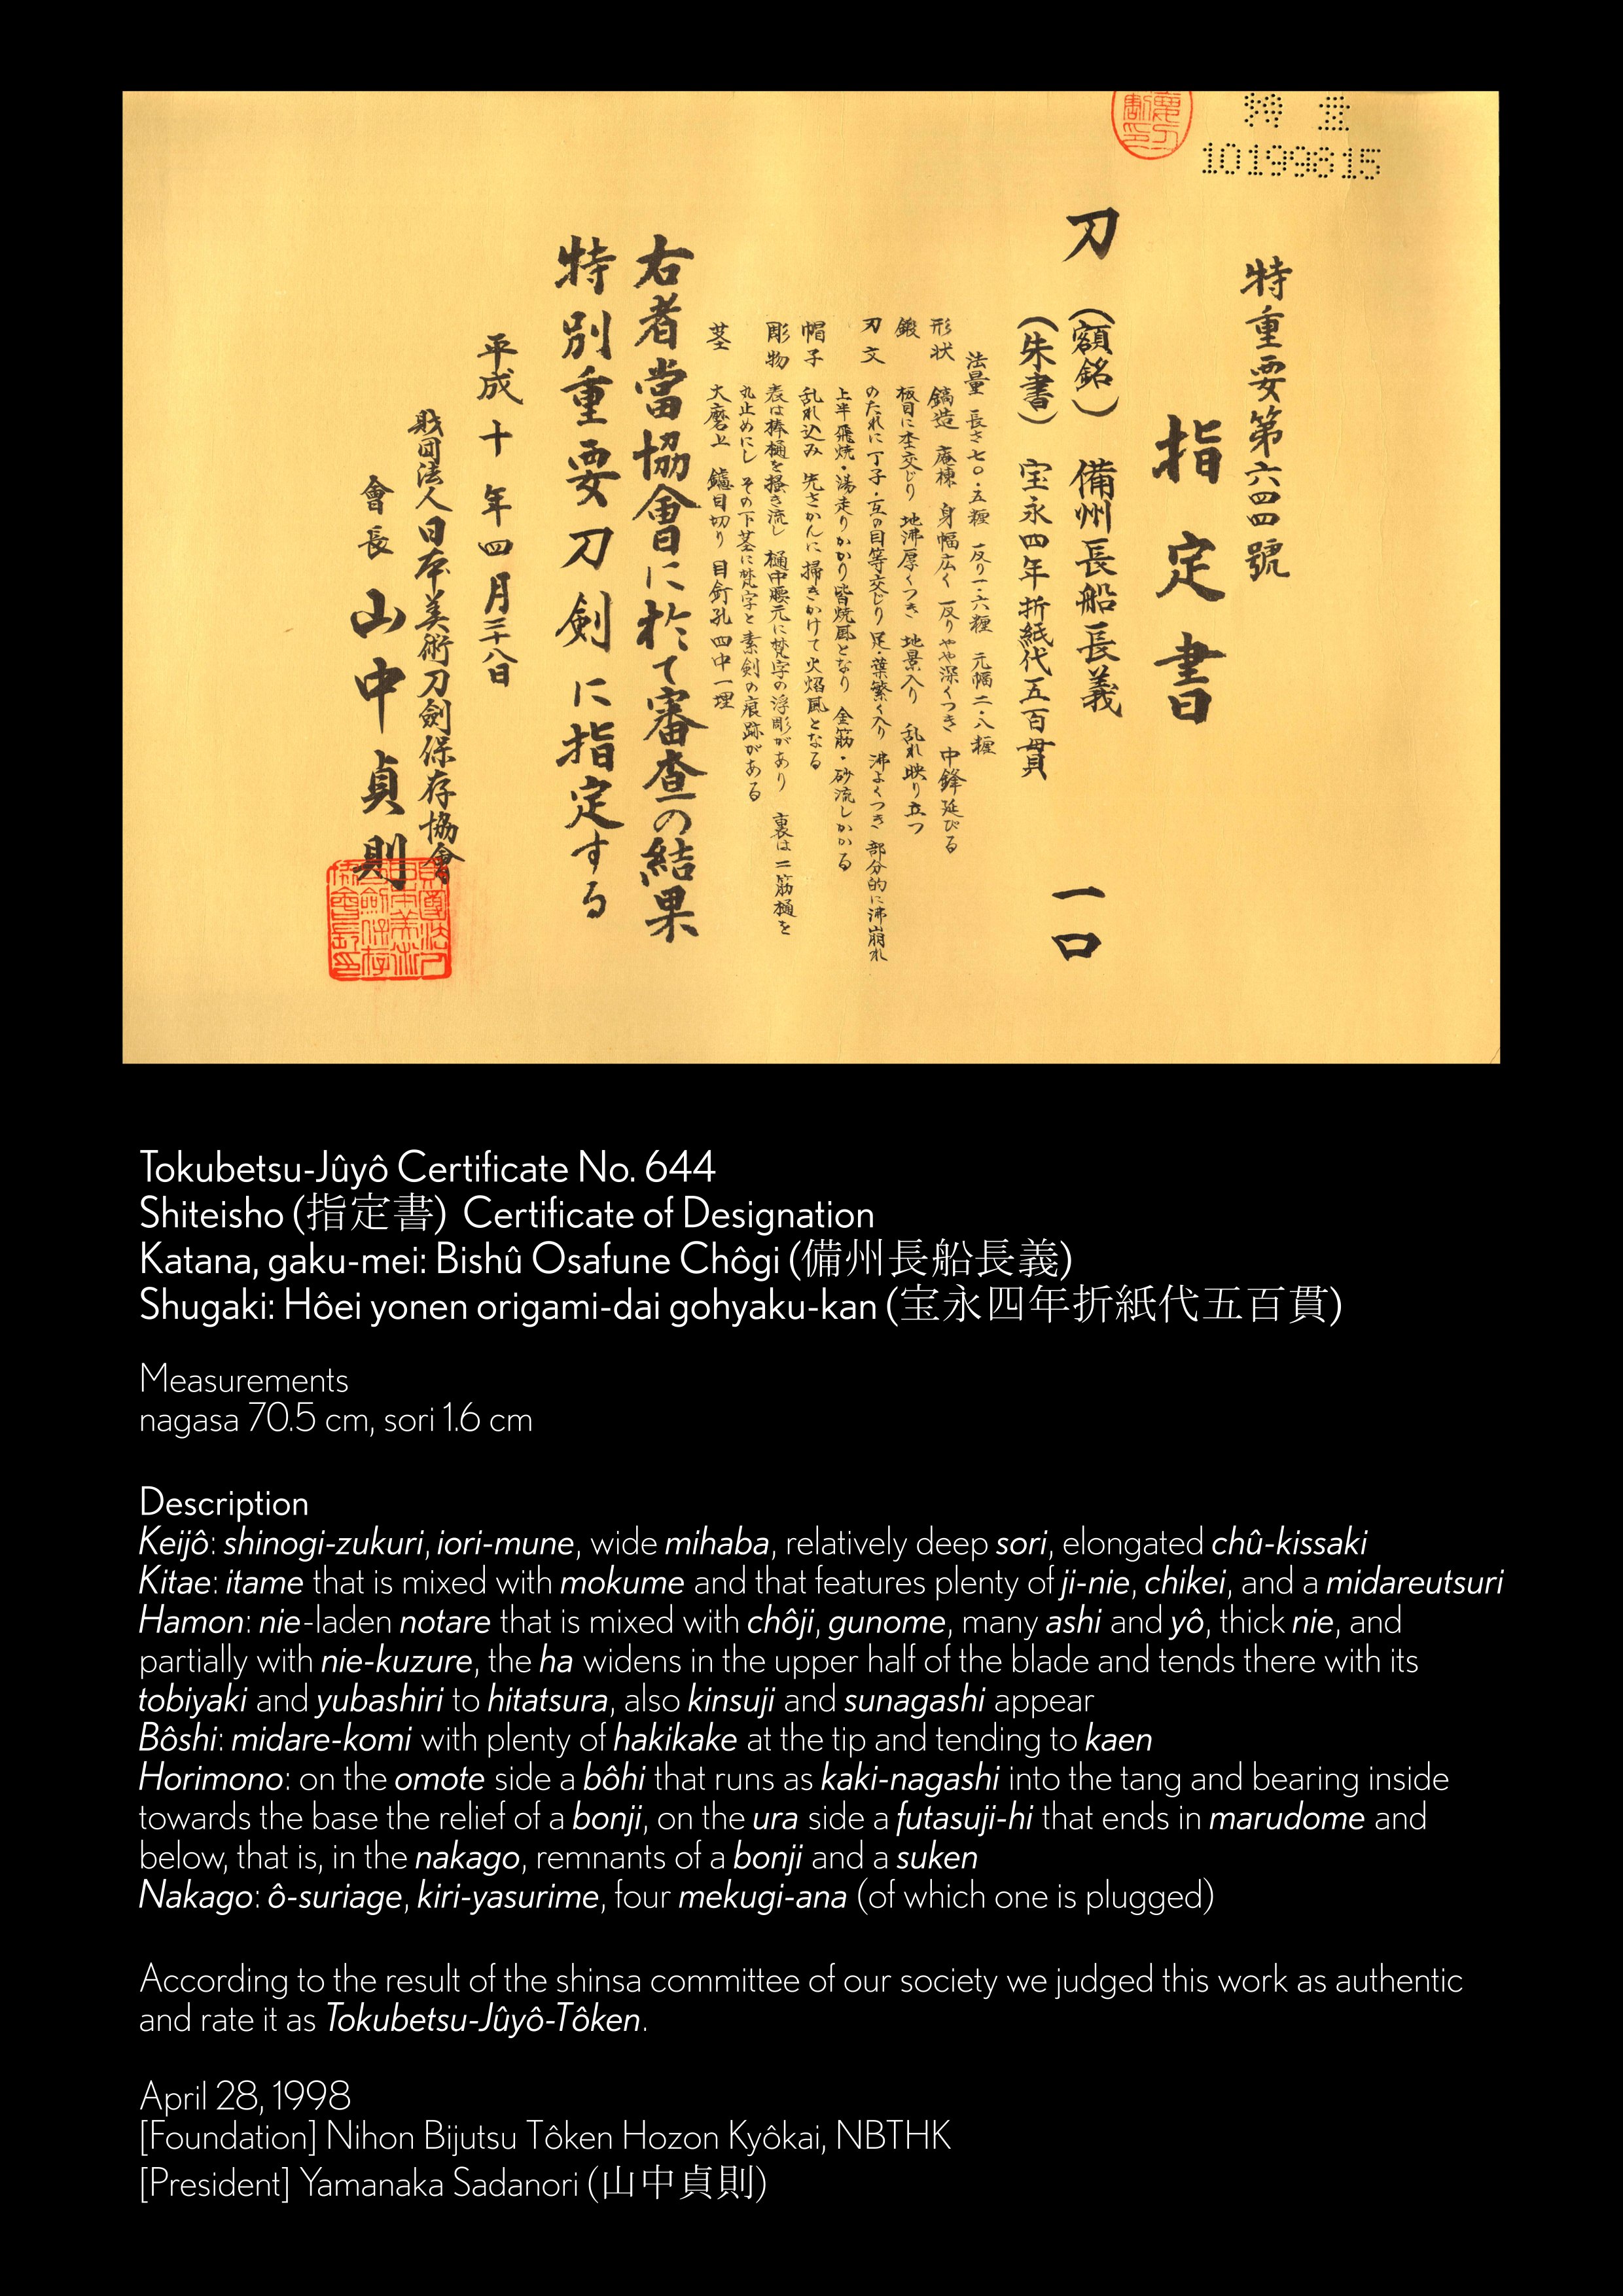 特 重
10199815
特重要第六四四號
指定書
刀 (額銘) 備州長船長義
(朱書) 宝永四年折紙代五百貫
一口
法量 長さ七〇・五糎 反り一・六糎 元幅二・八糎
形状 鎬造 庵棟 身幅広く 反りやや深くつき 中鋒延びる
鍛 板目に杢交じり 地沸厚くつき 地景入り 乱れ映り立つ
刃文 のたれに丁子・互の目等交じり 足・葉繁く入り 沸よくつき 部分的に沸崩れ
上半飛焼・湯走りかかり皆焼風となり 金筋・砂流しかかる
帽子 乱れ込み 先さかんに掃きかけて火焰風となる
彫物 表は棒樋を掻き流し 樋中腰元に梵字の浮彫があり 裏は二筋樋を
丸止めにし その下茎に梵字と素剣の痕跡がある
茎 大磨上 鑢目切り 目釘孔四中一埋
右者當協會に於て審査の結果
特別重要刀剣に指定する
平成十年四月二十八日
財団法人日本美術刀劍保存協會
會長 山中貞則
Tokubetsu-Jûyô Certificate No. 644
Shiteisho (指定書) Certificate of Designation
Katana, gaku-mei: Bishû Osafune Chôgi (備州長船長義)
Shugaki: Hôei yonen origami-dai gohyaku-kan (宝永四年折紙代五百貫)
Measurements
nagasa 70.5 cm, sori 1.6 cm
Description
Keijô: shinogi-zukuri, iori-mune, wide mihaba, relatively deep sori, elongated chû-kissaki
Kitae: itame that is mixed with mokume and that features plenty of ji-nie, chikei, and a midareutsuri
Hamon: nie-laden notare that is mixed with chôji, gunome, many ashi and yô, thick nie, and
partially with nie-kuzure, the ha widens in the upper half of the blade and tends there with its
tobiyaki and yubashiri to hitatsura, also kinsuji and sunagashi appear
Bôshi: midare-komi with plenty of hakikake at the tip and tending to kaen
Horimono: on the omote side a bôhi that runs as kaki-nagashi into the tang and bearing inside
towards the base the relief of a bonji, on the ura side a futasuji-hi that ends in marudome and
below, that is, in the nakago, remnants of a bonji and a suken
Nakago: ô-suriage, kiri-yasurime, four mekugi-ana (of which one is plugged)
According to the result of the shinsa committee of our society we judged this work as authentic
and rate it as Tokubetsu-Jûyô-Tôken.
April 28, 1998
[Foundation] Nihon Bijutsu Tôken Hozon Kyôkai, NBTHK
[President] Yamanaka Sadanori (山中貞則)